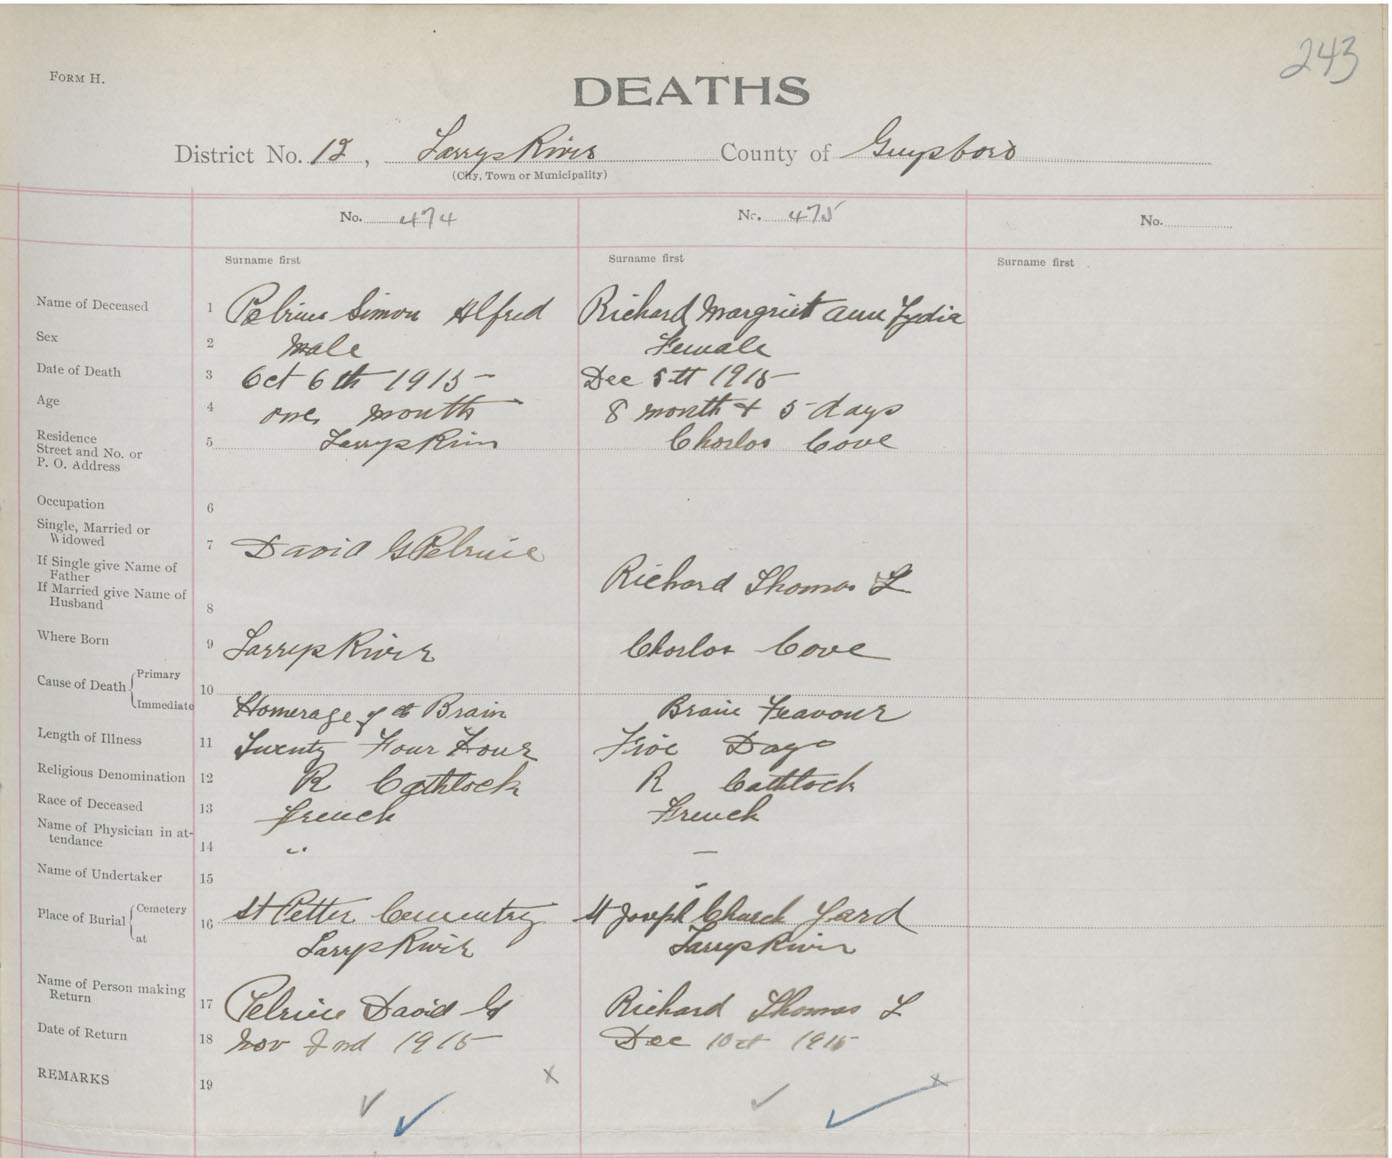 243
FORM H.
DEATHS
District No. 12, Larrys River County of Guysboro
(City, Town or Municipality)
No. 474 No. 475 No.
Surname first Surname first Surname first
Name of Deceased 1 Pelrine Simon Alfred Richard Margriet ann Lydia
Sex 2 Male Female
Date of Death 3 Oct 6th 1915 Dec 5th 1915
Age 4 one month 8 month + 5 days
Residence
Street and No. or
P. O. Address 5 Larrys River Chorlos Cove
Occupation 6
Single, Married or
Widowed 7 David G Pelrine
If Single give Name of
Father
If Married give Name of
Husband 8 Richard Thomas L
Where Born 9 Larrys River Chorlos Cove
Cause of Death { Primary 10
Immediate Homerage of th Brain Brain Feavour
Length of Illness 11 Twenty Four Hour Five Days
Religious Denomination 12 R Cathlock R Cathlock
Race of Deceased 13 french French
Name of Physician in at-
tendance 14 " —
Name of Undertaker 15 -
Place of Burial { Cemetery 16 St Petter Cementry St Joseph Church Yard
at Larrys River Larrys River
Name of Person making
Return 17 Pelrine David G Richard Thomas L
Date of Return 18 Nov 2nd 1915 Dec 10th 1915
REMARKS 19 x x